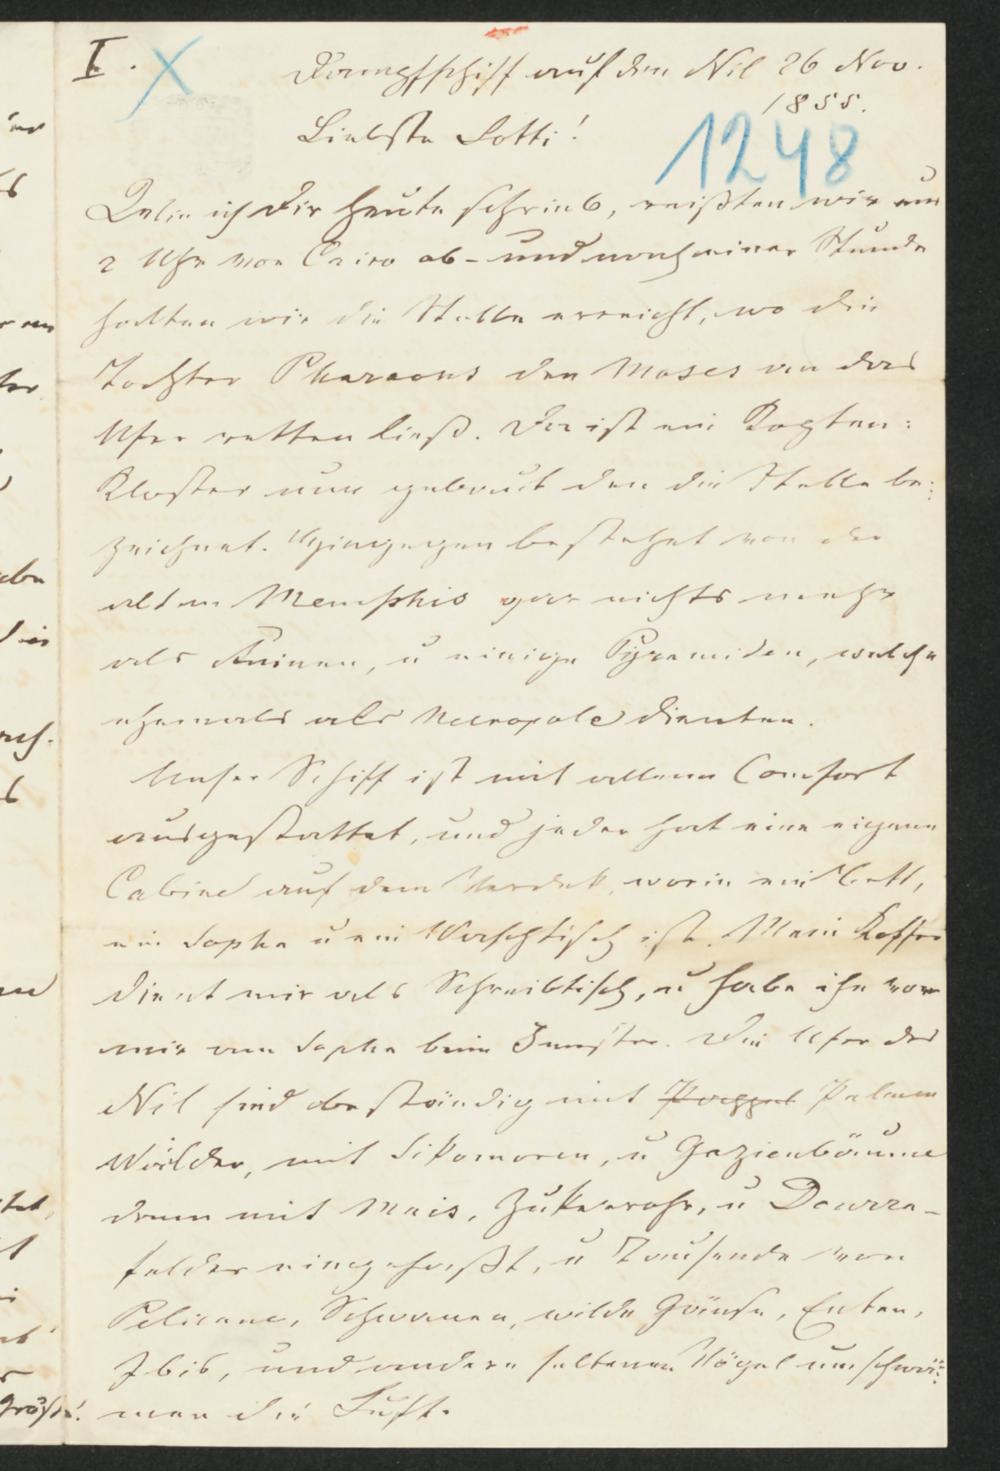 I.
Dampfschiff auf dem Nil 26 Nov.
1855.
1248
Liebste Lotti!
Wie ich Dir heute schrieb, reißten wir um
2 Uhr von Cairo ab - und nach einer Stunde
hatten wir die Stelle erreicht, wo die
Tochter Pharaons den Moses an das
Ufer retten ließ. Da ist ein Kopten:
Kloster nun gebaut den die Stelle be:
zeichnet. Hingegen bestehet von der
alten Memphis gar nichts mehr
als Ruinen, u einige Pyramiden, welche
ehemals als Necropole dienten.
Unser Schiff ist mit allem Comfort
ausgestattet, und jeder hat eine eigene
Cabine auf dem Verdek, worin ein Bett,
ein Sopha u ein Waschtisch ist. Mein Koffer
dient mir als Schreibtisch, u habe ihn vor
mir am Sopha beim Fenster. Die Ufer des
Nil sind beständig mit Palmen
Wälder, mit Sikomoren, u Gazienbäume
dann mit Mais, Zukerrohr, u Dourra-
felder eingefaßt, u Tausende von
Pelicane, Schwanen, wilde Gänse, Enten,
Ibis, und andere seltenen Vögel umschwär:
men die Luft.